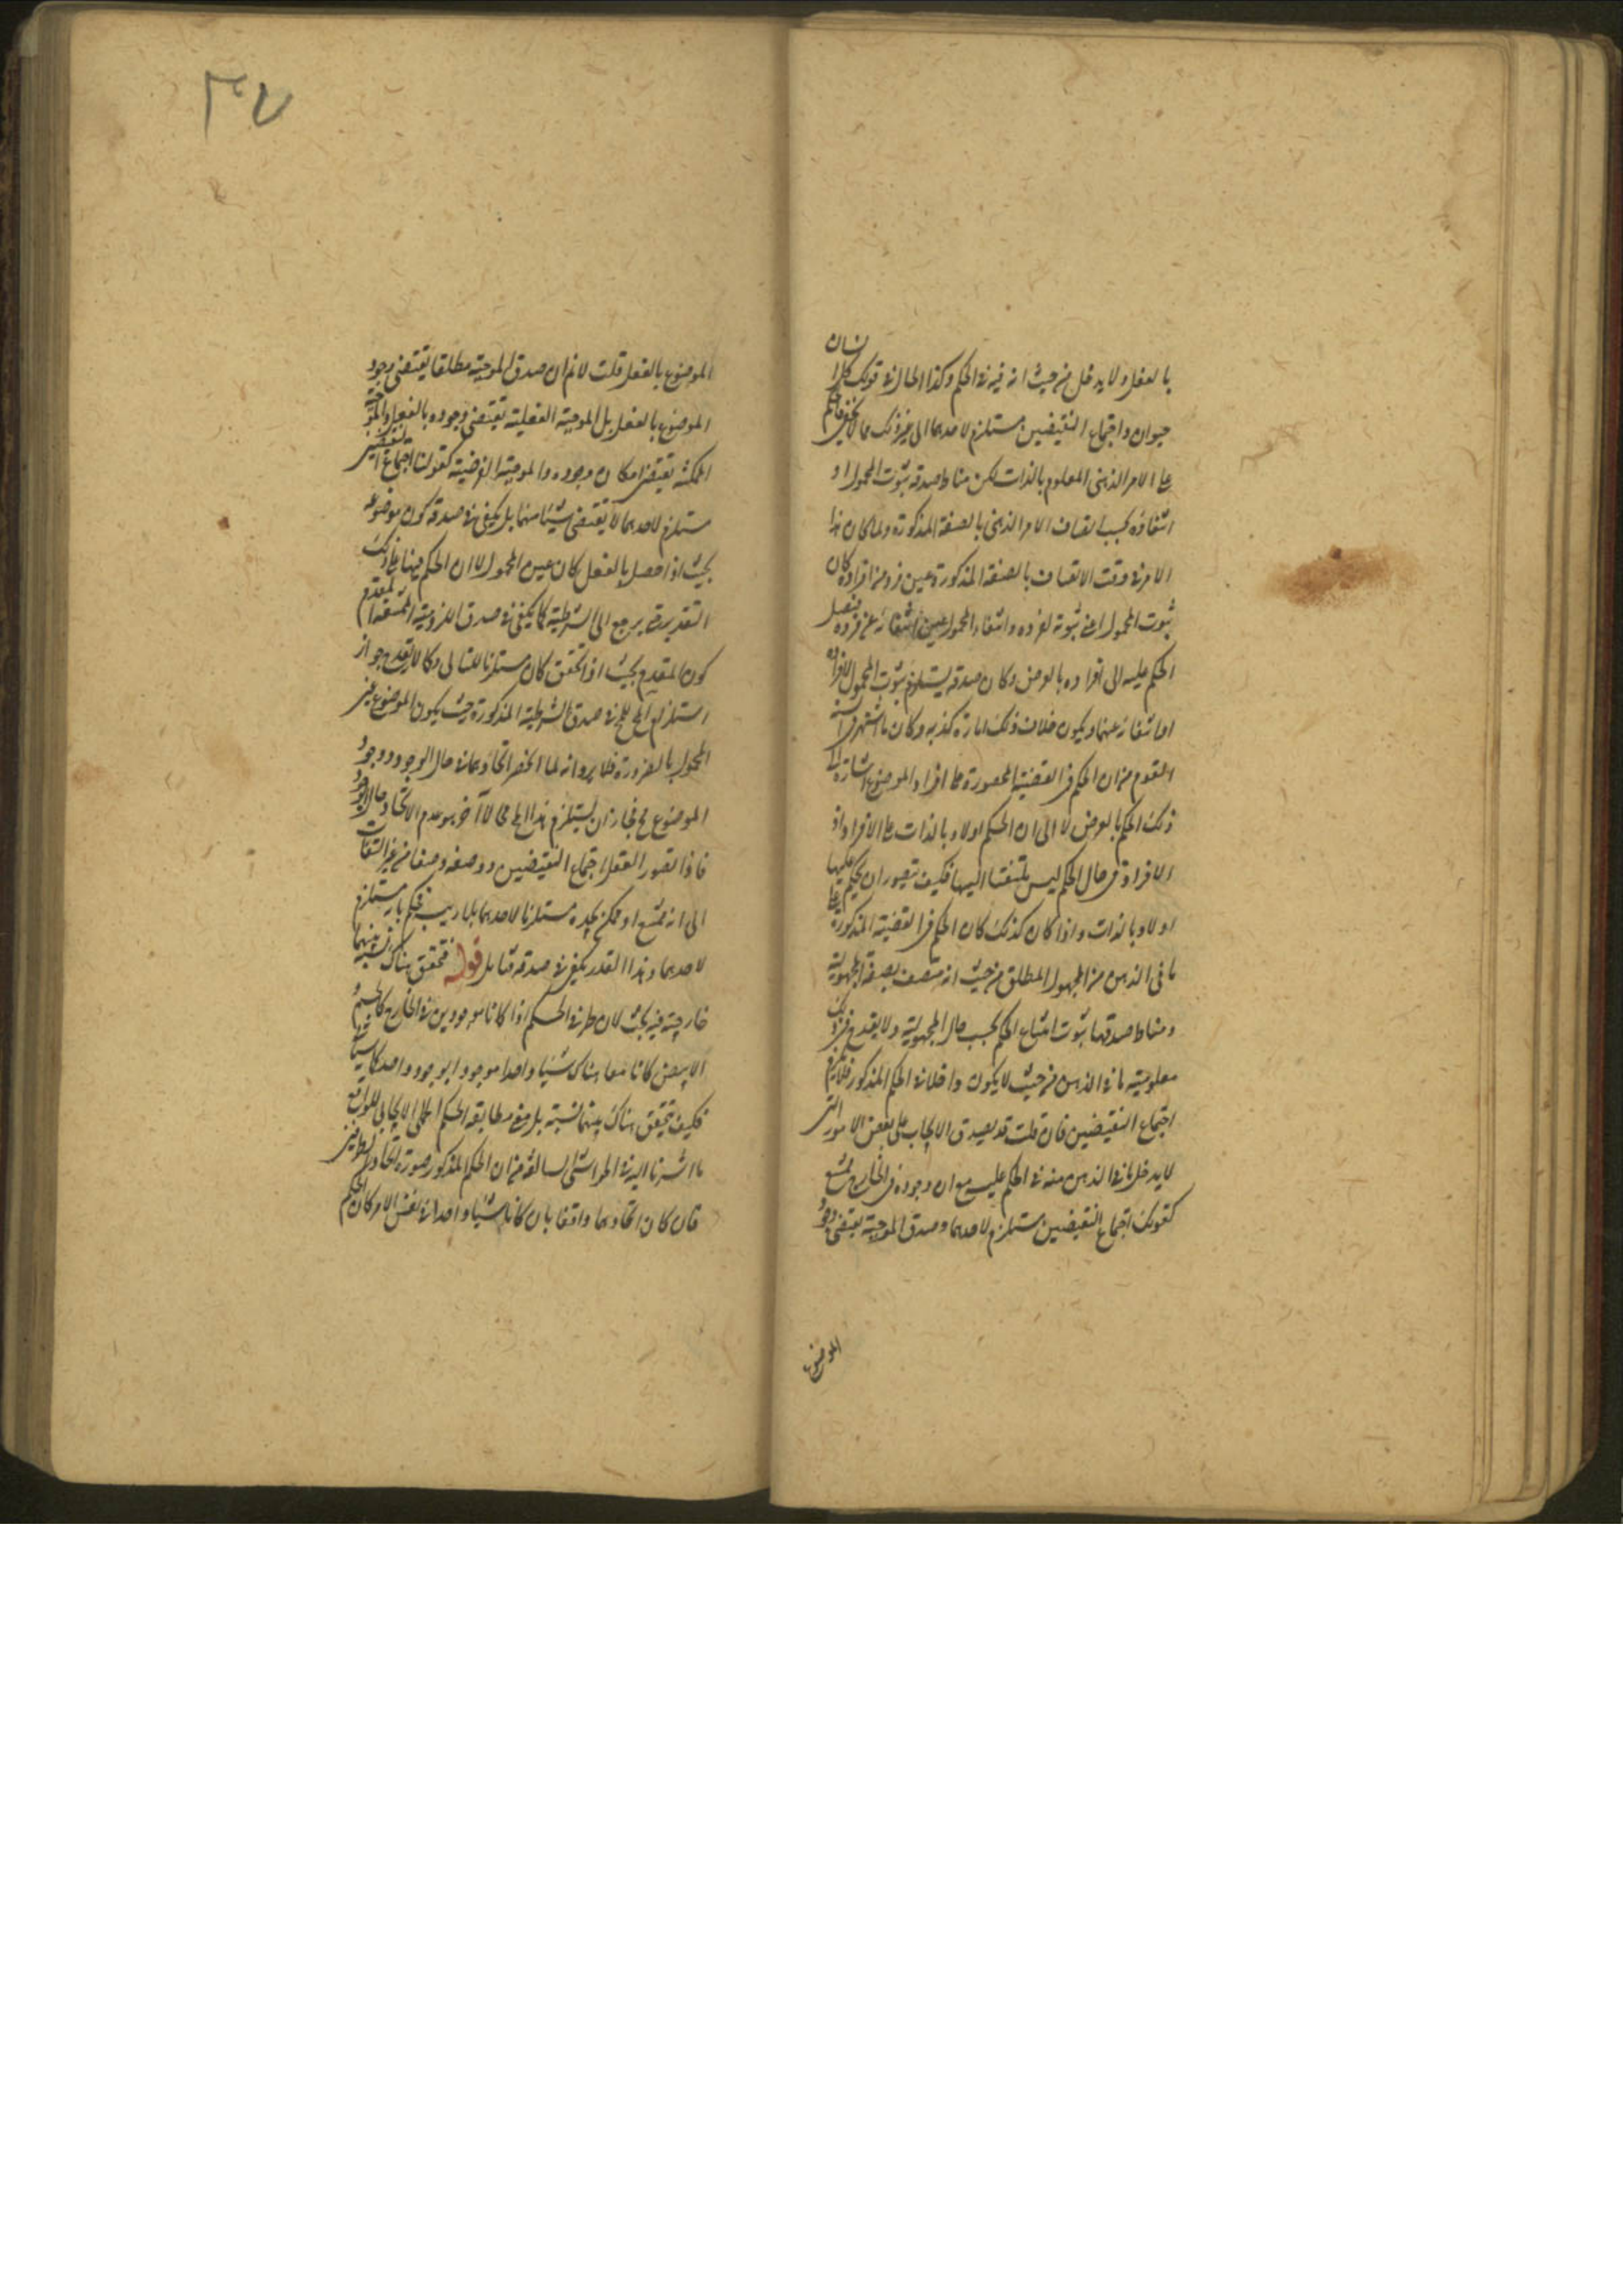 بالفعل ولا يدخل من حيث انه فيه في الحكم وكذا الحال في قولك كل انسان
حيوان واجتماع النقيضين مستلزم لاحدهما الى غير ذلك مما لا يخفى فالحكم
على الامر الذهنى المعلوم بالذات لكن مناط صدقه ثبوت المحمول او
انتفاؤه بحسب اتصاف الامر الذهنى بالصفة المذكورة ولما كان هذا
الامر في وقت الاتصاف بالصفة المذكورة عين فرد من افراده كان
ثبوت المحمول اعنى ثبوته لفرده وانتفاء المحمول عين انتفائه عن فرده
الحكم عليه الى افراده بالعرض وكان صدقه يستلزم ثبوت المحمول لافراده
او انتفائه عنها ويكون خلاف ذلك امارة كذبه وكان ما اشتهر
القوم من ان الحكم في القضية المحصورة على افراد الموضوع اشارة الى
ذلك الحكم بالعرض لا الى ان الحكم اولا وبالذات على الافراد اذ
الافراد في حال الحكم ليس ملتفتا اليها فكيف يتصور ان يحكم عليها
اولا وبالذات واذا كان كذلك كان الحكم في القضية المذكورة على
ما فى الذهن من المجهول المطلق من حيث انه متصف بصفة المجهولية
ومناط صدقها ثبوت امتناع الحكم بحسب حال المجهولية ولا يقدح في ذلك
معلوميته ما في الذهن من حيث لا يكون داخلا في الحكم المذكور فلا يلزم
اجتماع النقيضين فان قلت قد يصدق الايجاب على بعض الامور التى
لا يدخل ما في الذهن منه في الحكم عليه مع ان وجوده في الخارج ممتنع
كقولك اجتماع النقيضين مستلزم لاحدهما وصدق الموجبة يقتضى وجود
الموضوع
٣٧
الموضوع بالفعل قلت لا نم ان صدق الموجبة مطلقا يقتضى وجود
الموضوع بالفعل بل الموجبة الفعلية تقتضى وجوده بالفعل والموجبة
الممكنة تقتضى امكان وجوده والموجبة الفرضية كقولنا اجتماع النقيضين
مستلزم لاحدهما لا يقتضى شيئا منهما بل يكفى في صدقه كون موضوعه
بحيث اذا حصل بالفعل كان عين المحمول لا ان الحكم فيها على ذلك
التقدير حتى يرجع الى الشرطية كما يكفى في صدق اللزومية المقدم
كون المقدم بحيث اذا تحقق كان مستلزما للتالى وكما لا يقدح جواز
استلزام المحال في صدق الشرطية المذكورة حيث يكون الموضوع عين
المحمول بالضرورة فلا يرد انه لما انحصر اتحادهما في حال الوجود ووجود
الموضوع مح فجاز ان يستلزم هذا المحال محالا آخر هو عدم الاتحاد حال الوجود
فاذا تصور العقل اجتماع النقيضين ووصفه وصفا من غير التفات
الى انه ممتنع او ممكن يجده مستلزما لاحدهما بلا ريب فيحكم بانه مستلزم
لاحدهما وهذا القدر يكفى في صدقه فتأمل قوله فتحقق هناك نسبة بينهما
خارجية فيه بحث لان طرفى الحكم اذا كانا موجودين في الخارج كالجسم
الابيض كانا معا هناك شيئا واحدا موجودا بوجود واحد
فكيف يتحقق هناك بينهما نسبة بل معنى مطابقة الحكم الحملى الايجابى للواقع
ما اشرنا اليه في الحواشى السالفة من ان الحكم المذكور صورة اتحاد الطرفين
فان كان اتحادهما واقعا بان كانا شيئا واحدا في نفس الامر كان الحكم